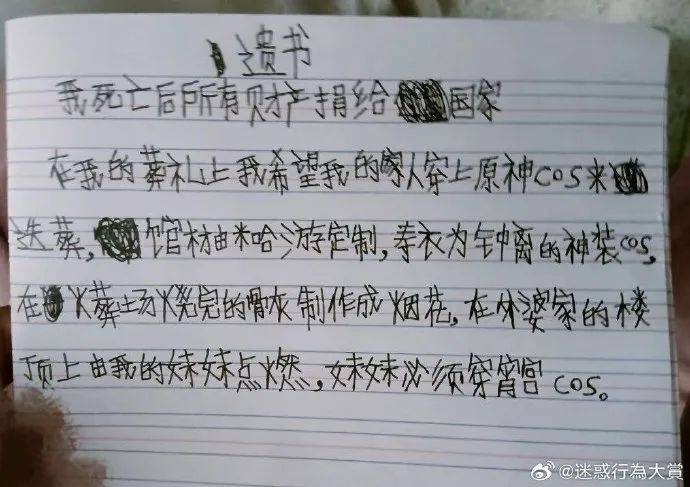 遗书
我死亡后所有财产捐给国家
在我的葬礼上我希望我的家人穿上原神cos来
送葬,馆材由米哈游定制,寿衣为钟离的神装cos,
在火葬场火烧完的骨灰制作成烟花,在外婆家的楼
顶上由我的妹妹点燃,妹妹必须穿宵宫cos。
@迷惑行為大賞